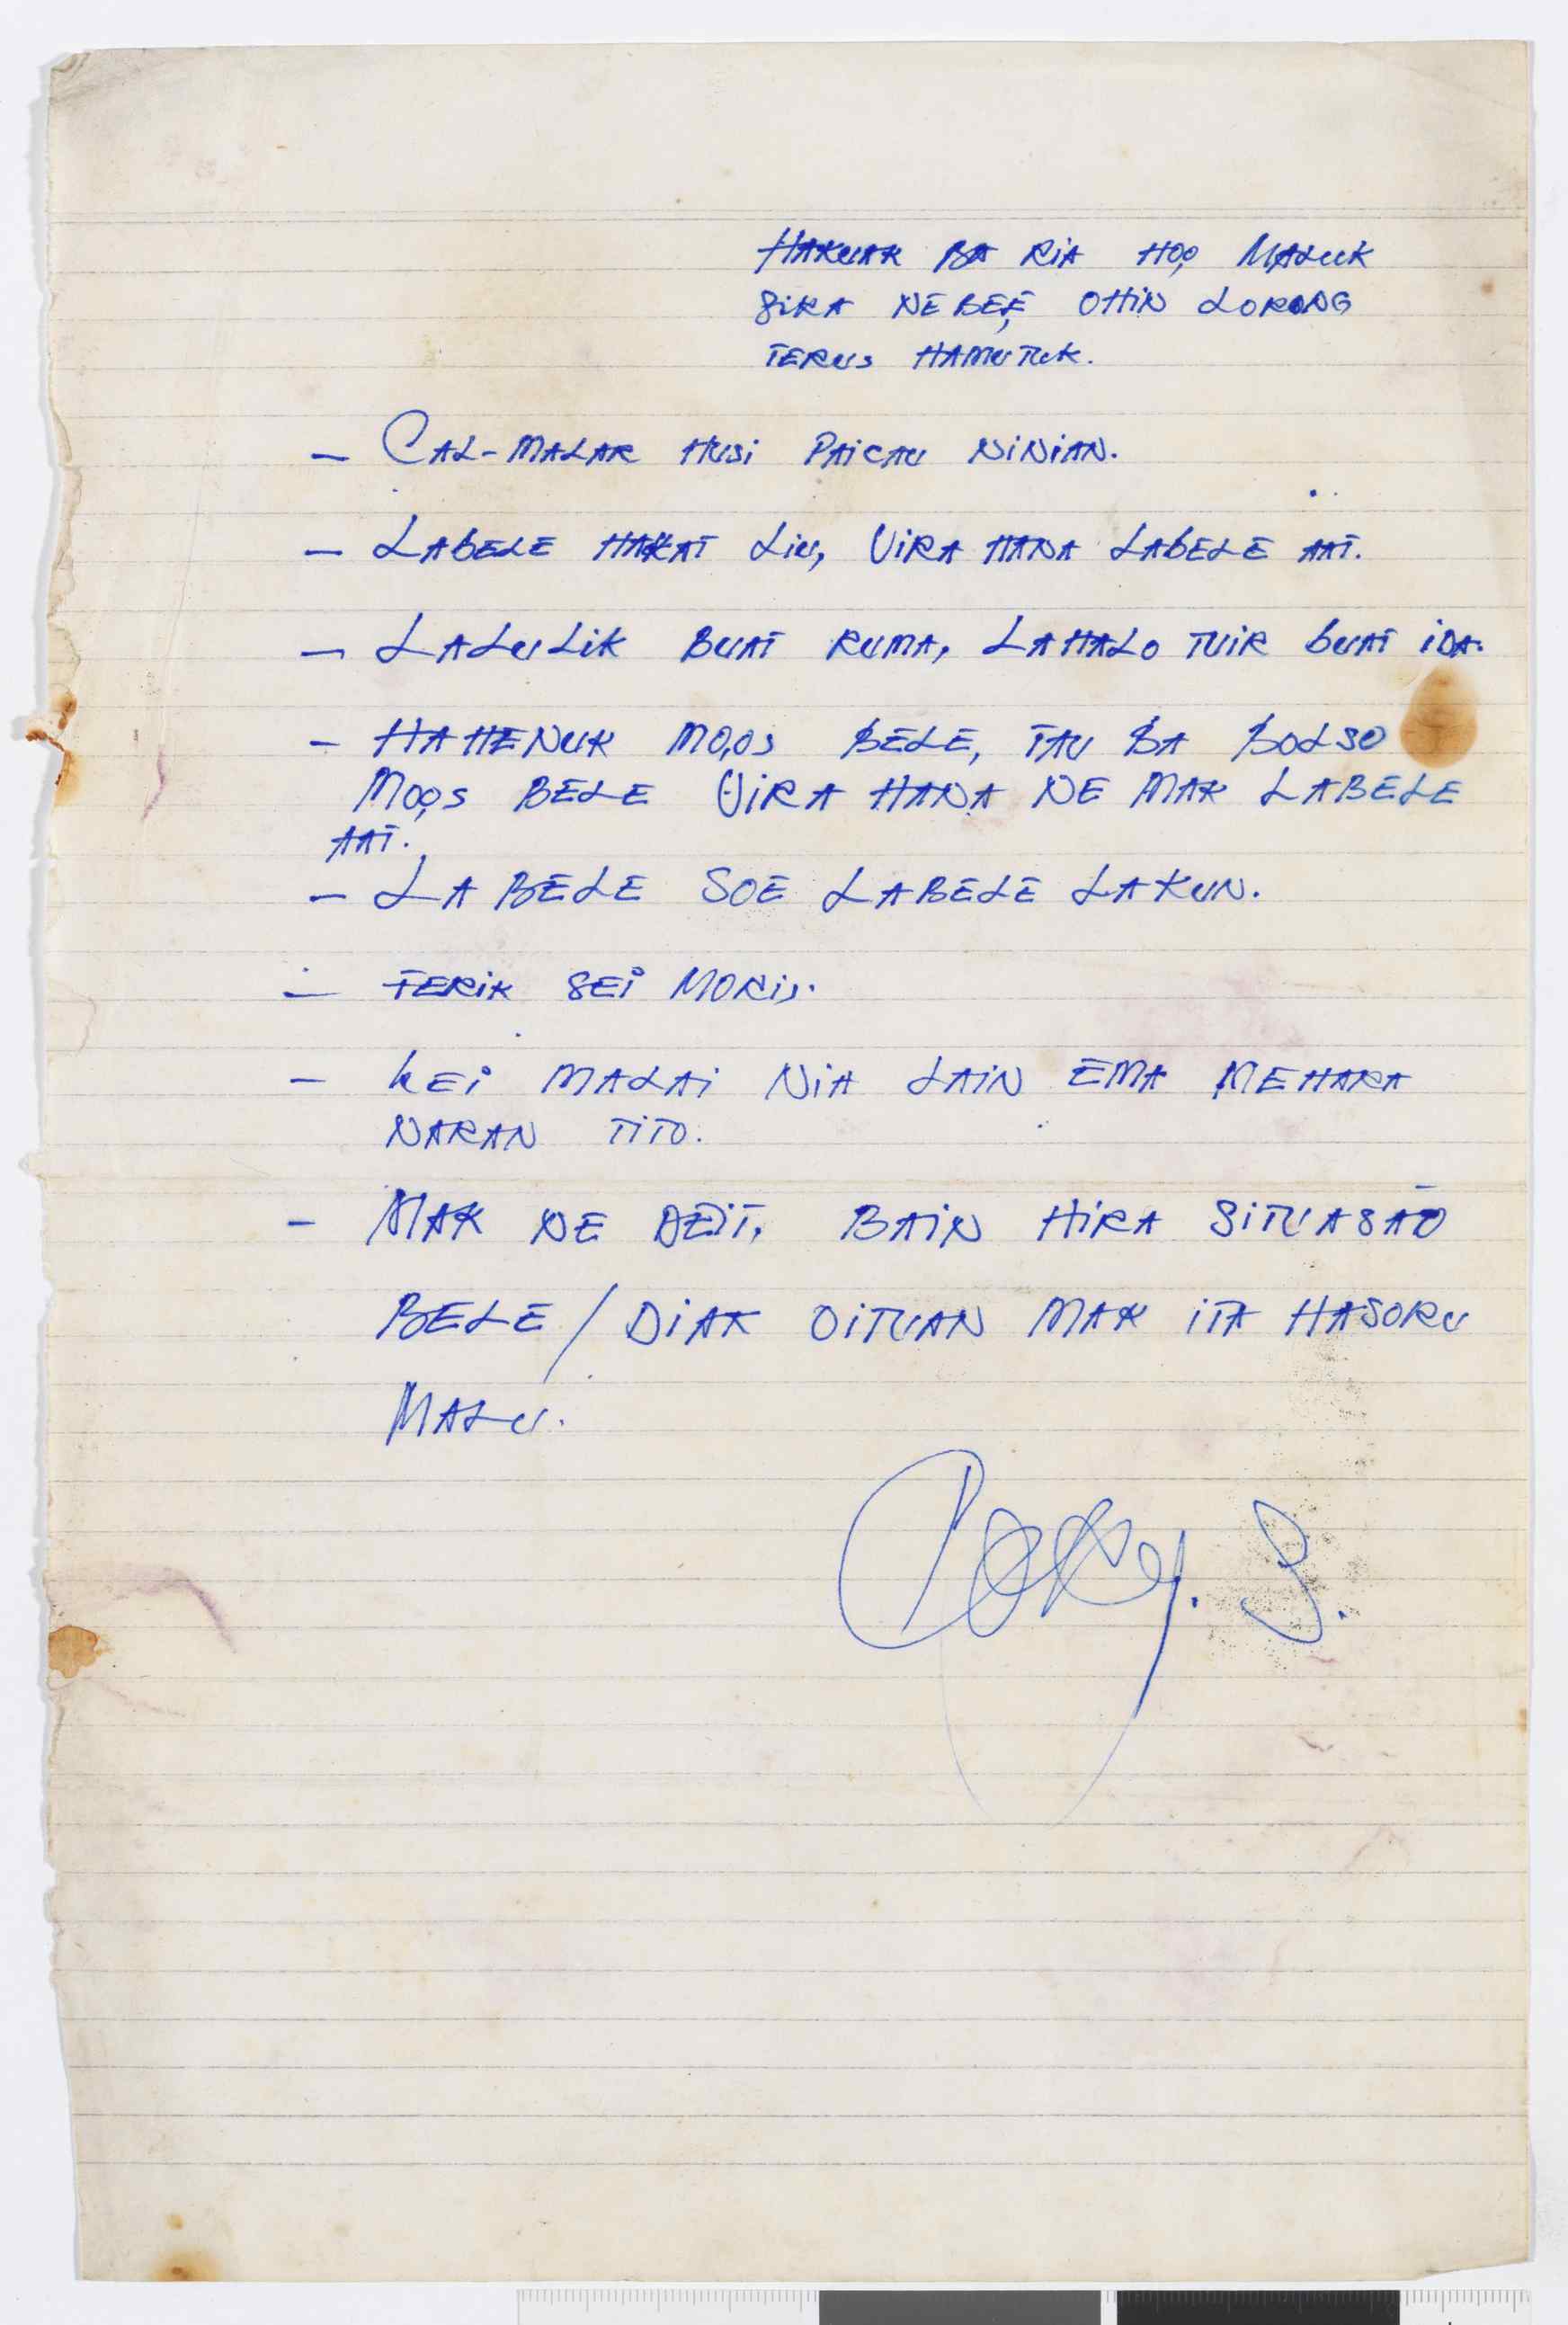 HAKUAK BA RIA HO, MALUK
SIRA NEBEE, OHIN LORONG
TERUS HAMUTUK.
- CAL-MALAR HUSI PAICAU NINIAN.
- LABELE HAKAT LIU, VIRA HANA LABELE AAT.
- LALULIK BUAT RUMA, LAHALO TUIR BUAT IDA.
- HAHENUK MO,OS BELE, TAU BA BOLSO
MO,OS BELE VIRA HANA NE MAK LABELE
AAT.
- LA BELE SOE LABELE LAKUN.
- FERIK SEI MORIS.
- KEI MALAI NIA LAIN EMA MEHARA
NARAN TITO.
- MAK NE DEIT, BAIN HIRA SITUASÃO
BELE / DIAK OITUAN MAK ITA HASORU
MALU.